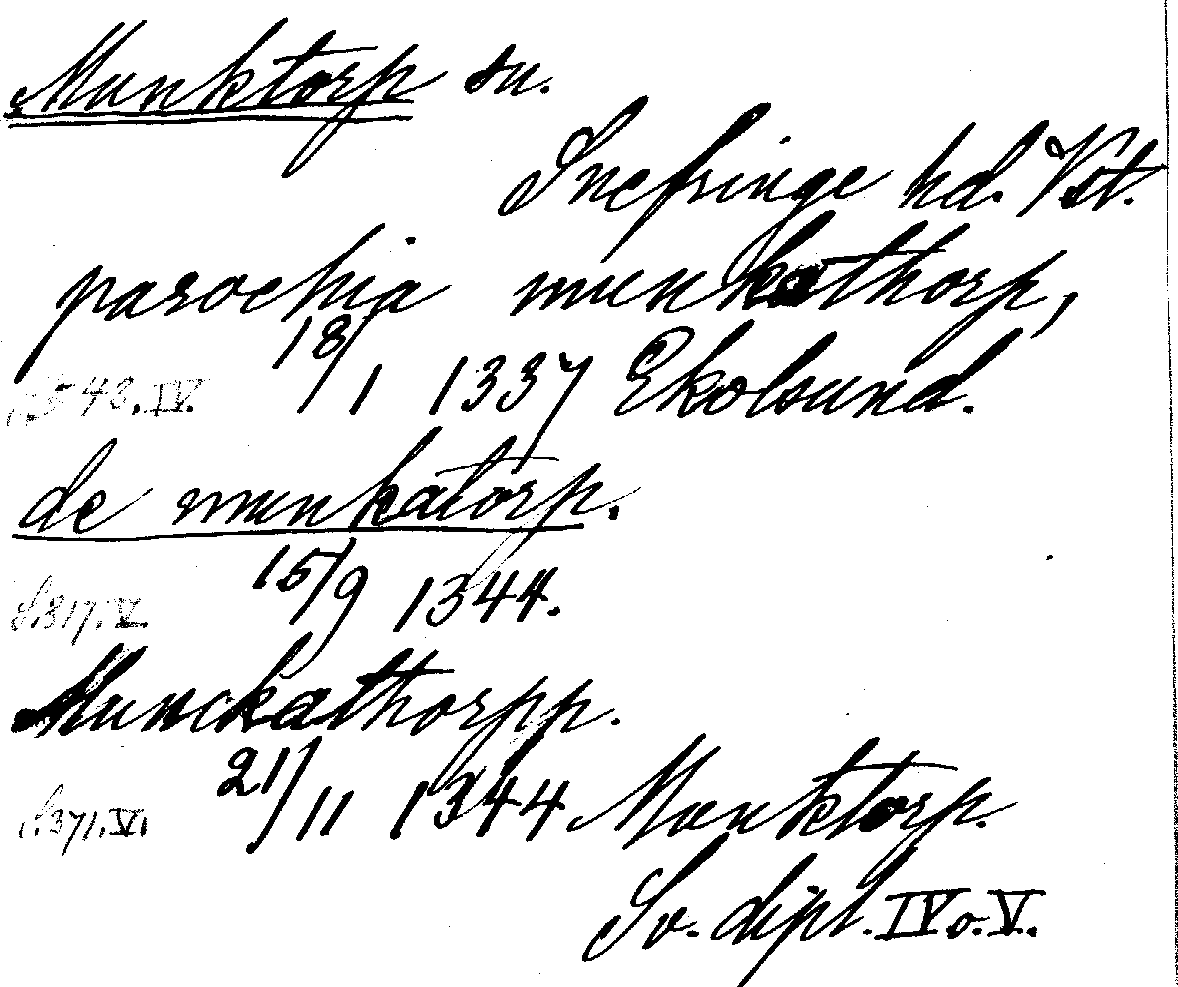 Munktorp sn.
Snefringe hd. Vst.
parochia munkathorp,
18/1 1337 Ekolsund.
S. 543. IV.
de munkatorp.
15/9 1344.
S. 317. V.
Munckathorpp.
21/11 1344 Munktorp.
S. 371. V.
Sv. dipl. IV o. V.